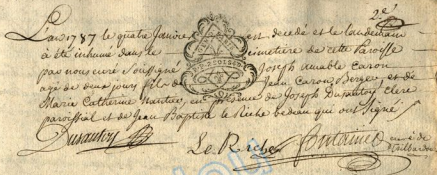 2e
L'an 1787 le quatre Janvier est decedé et le landemain
a été inhumé dans le cimetiere de cette Paroisse
par nous curé soussigné Joseph amable Caron
age de deux jours fils de Jean Caron Berger, et de
Marie Catherine en présence de Joseph Dusautoy clerc
paroissial et de Jean Baptiste le Riche bedeau qui ont signé
Dusautoy
Le Riche Fontaine curé de